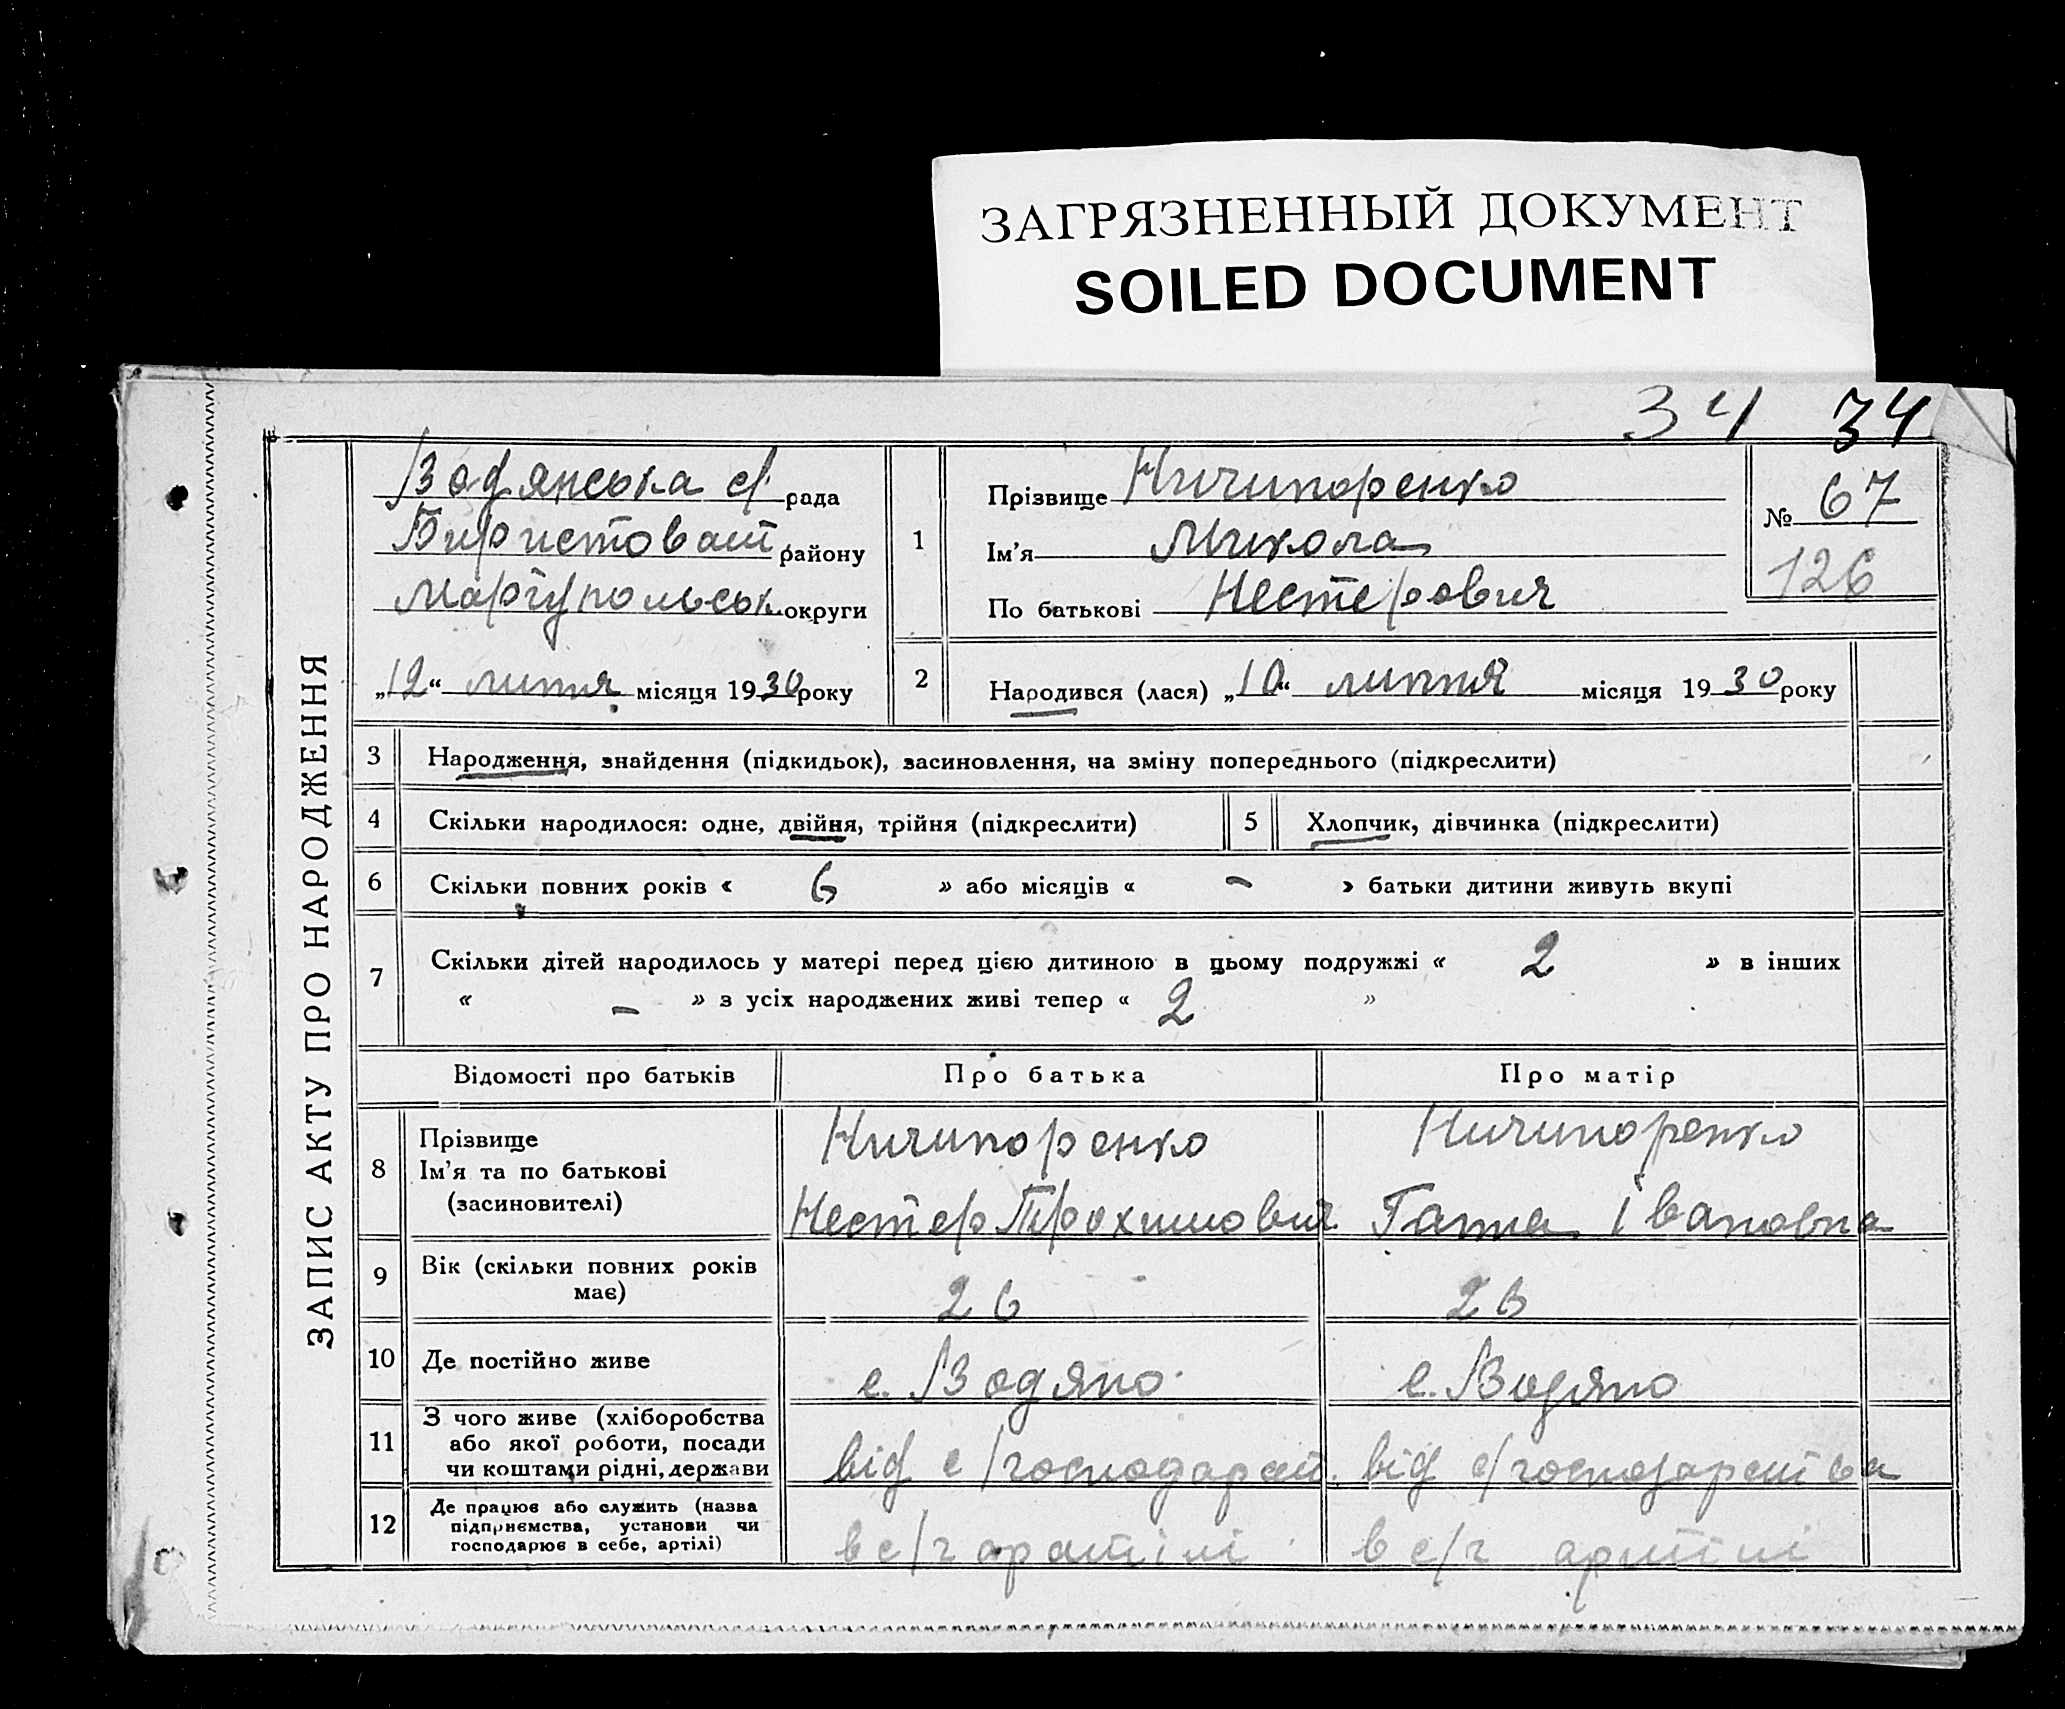 ЗАГРЯЗНЕННЫЙ ДОКУМЕНТ
SOILED DOCUMENT
34 34
ЗАПИС АКТУ ПРО НАРОДЖЕННЯ
Водянська с/. рада
району
Маріупольськ. округи
„12“ липня місяця 1930 року
1
Прізвище Ничипоренко
Ім'я Микола
По батькові Нестерович
№ 67
126
2 Народився (лася) „10“ липня місяця 1930 року
3 Народження, знайдення (підкидьок), засиновлення, на зміну попереднього (підкреслити)
4 Скільки народилося: одне, двійня, трійня (підкреслити) 5 Хлопчик, дівчинка (підкреслити)
6 Скільки повних років « 6 » або місяців « – » батьки дитини живуть вкупі
7 Скільки дітей народилось у матері перед цією дитиною в цьому подружжі « 2 » в інших
« – » з усіх народжених живі тепер « 2 »
Відомості про батьків Про батька Про матір
8 Прізвище
Ім'я та по батькові
(засиновителі)
Ничипоренко
Нестер Трохимович
Ничипоренко
Гапка Івановна
9 Вік (скільки повних років
має)
26 26
10 Де постійно живе с. Водяно с. Водяно
11 З чого живе (хліборобства
або якої роботи, посади
чи коштами рідні, держави
від с/господарст. від с/господарства
12 Де працює або служить (назва
підприємства, установи чи
господарює в себе, артілі)
в с/г артілі в с/г артілі